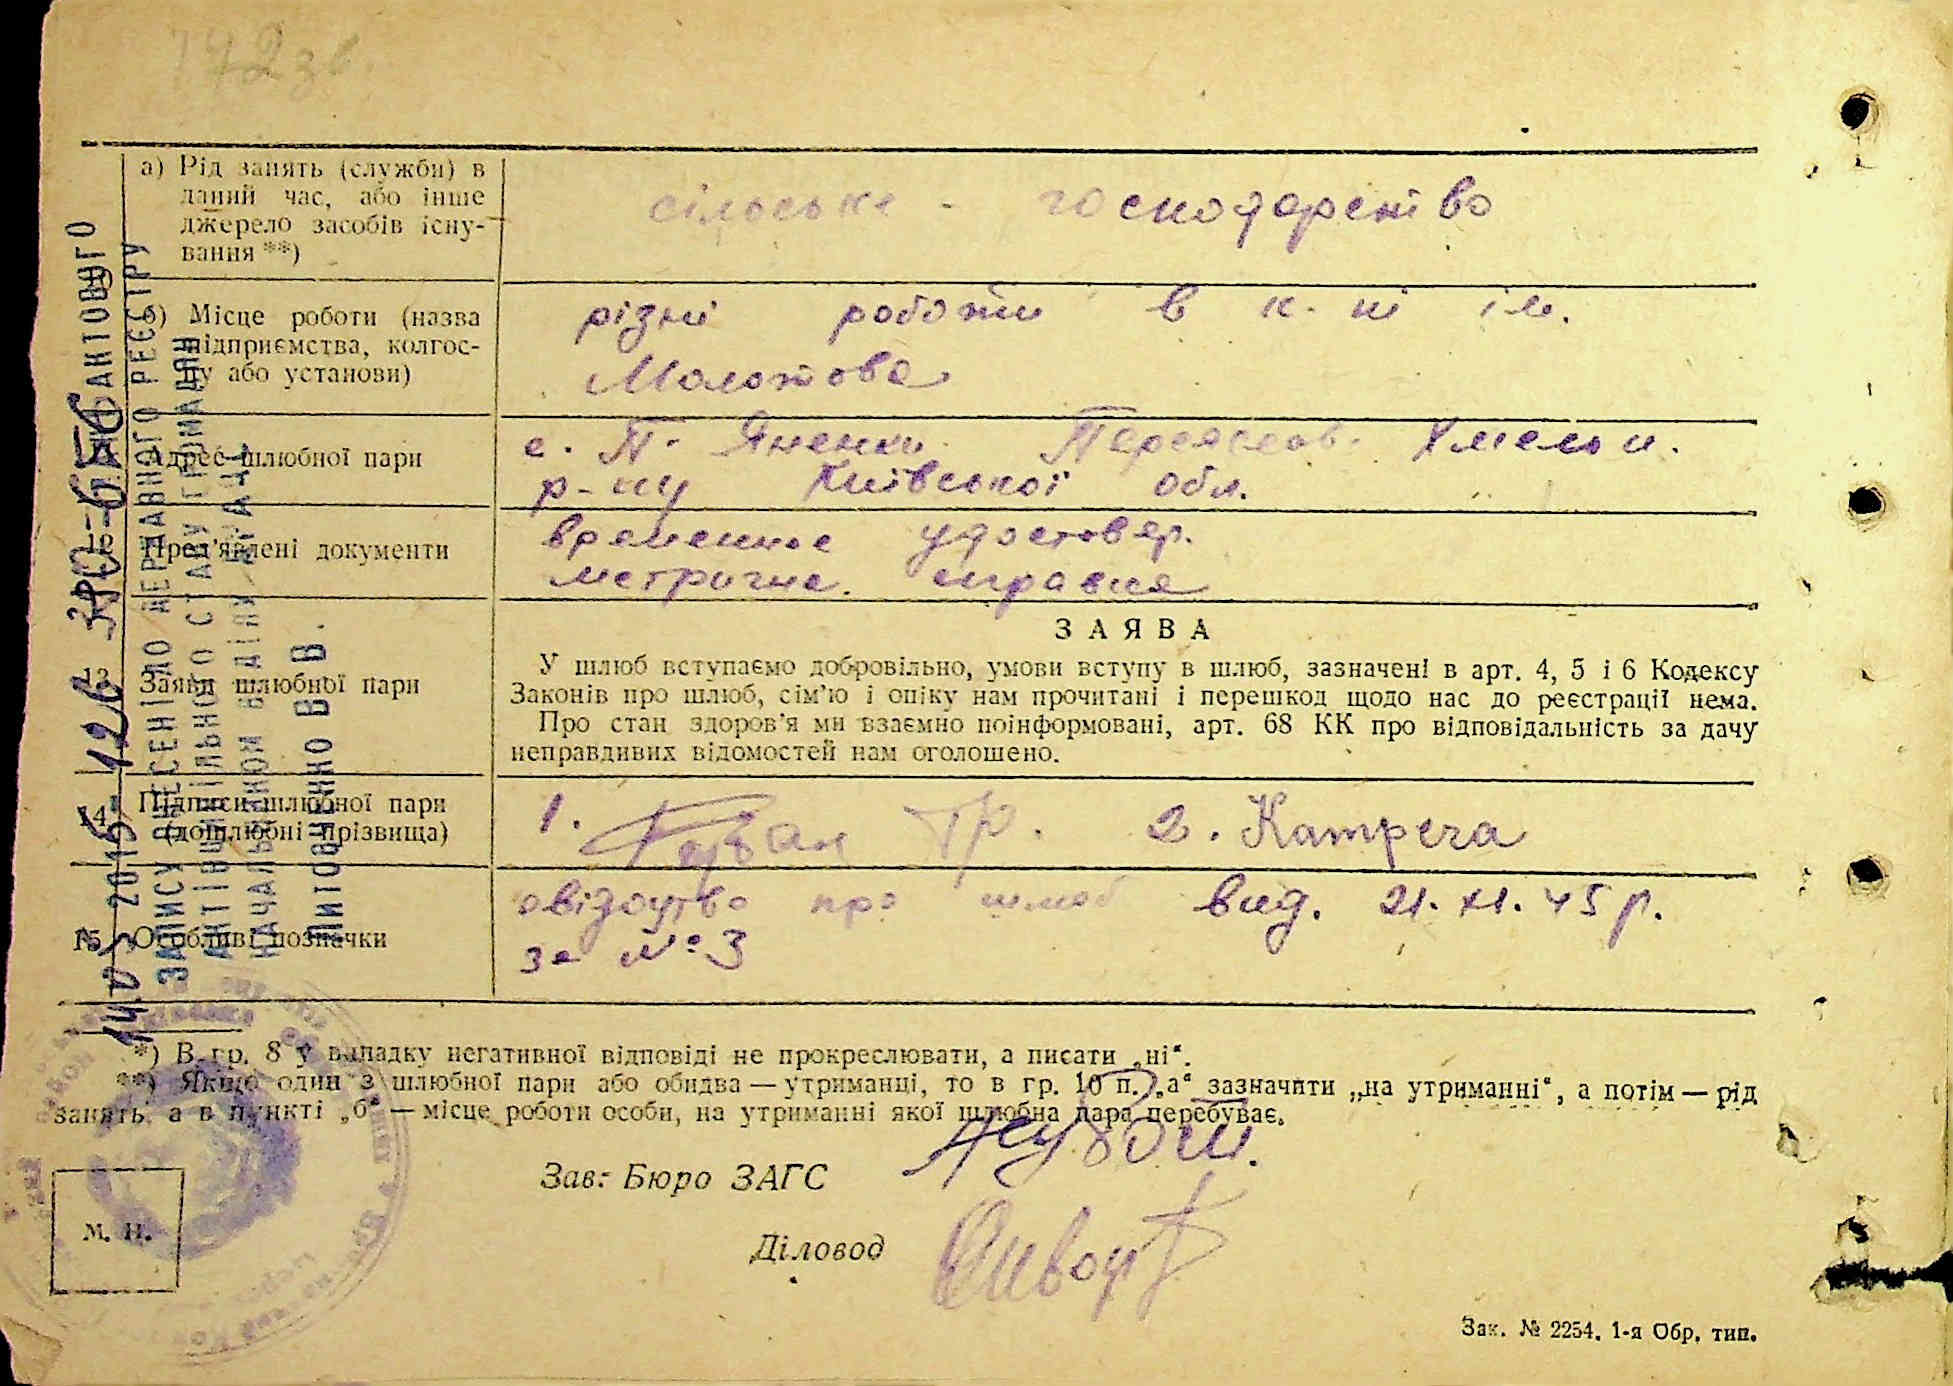 172 зв.
а) Рід занять (служби) в
даний час, або інше
джерело засобів існу-
вання **)
сільське - господарство
б) Місце роботи (назва
підприємства, колгос-
пу або установи)
різні роботи в к. ні ім.
Молотова
Адрес шлюбної пари
с. П. Яненки Переяслав. Хмельн.
р-ну Київської обл.
12 Пред'явлені документи
временное удостовер.
метричне. справка
13 Заява шлюбної пари
ЗАЯВА
У шлюб вступаємо добровільно, умови вступу в шлюб, зазначені в арт. 4, 5 і 6 Кодексу
Законів про шлюб, сім'ю і опіку нам прочитані і перешкод щодо нас до реєстрації нема.
Про стан здоров'я ми взаємно поінформовані, арт. 68 КК про відповідальність за дачу
неправдивих відомостей нам оголошено.
14 Підписи шлюбної пари
(дошлюбні прізвища)
1. Гр. 2. Катреча
15 Особливі позначки
свідоцтво про шлюб вид. 21. XI. 45 р.
за № 3
*) В гр. 8 у випадку негативної відповіді не прокреслювати, а писати „ні“.
**) Якщо один з шлюбної пари або обидва — утриманці, то в гр. 10 п. „а“ зазначити „на утриманні“, а потім — рід
занять, а в пункті „б“ — місце роботи особи, на утриманні якої шлюбна пара перебуває.
Зав. Бюро ЗАГС
Діловод
М. П.
Зак. № 2254. 1-я Обр. тип.
АКТОВОГО
ЗАПИСУ ВНЕСЕНІ ДО ДЕРЖАВНОГО РЕЄСТРУ
АКТІВ ЦИВІЛЬНОГО СТАНУ ГРОМАДЯН
НАЧАЛЬНИКОМ ВІДДІЛУ ДРАЦС
ЛИТОВЧЕНКО В В.